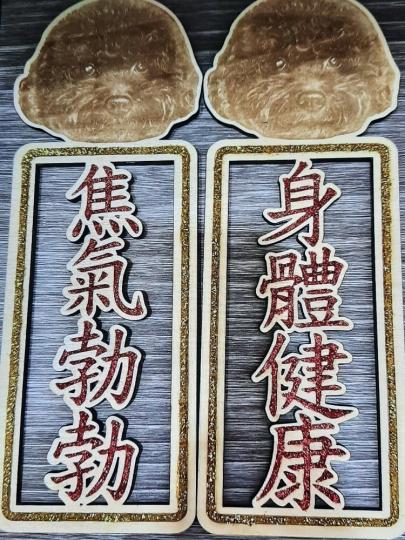 身體健康
焦氣勃勃